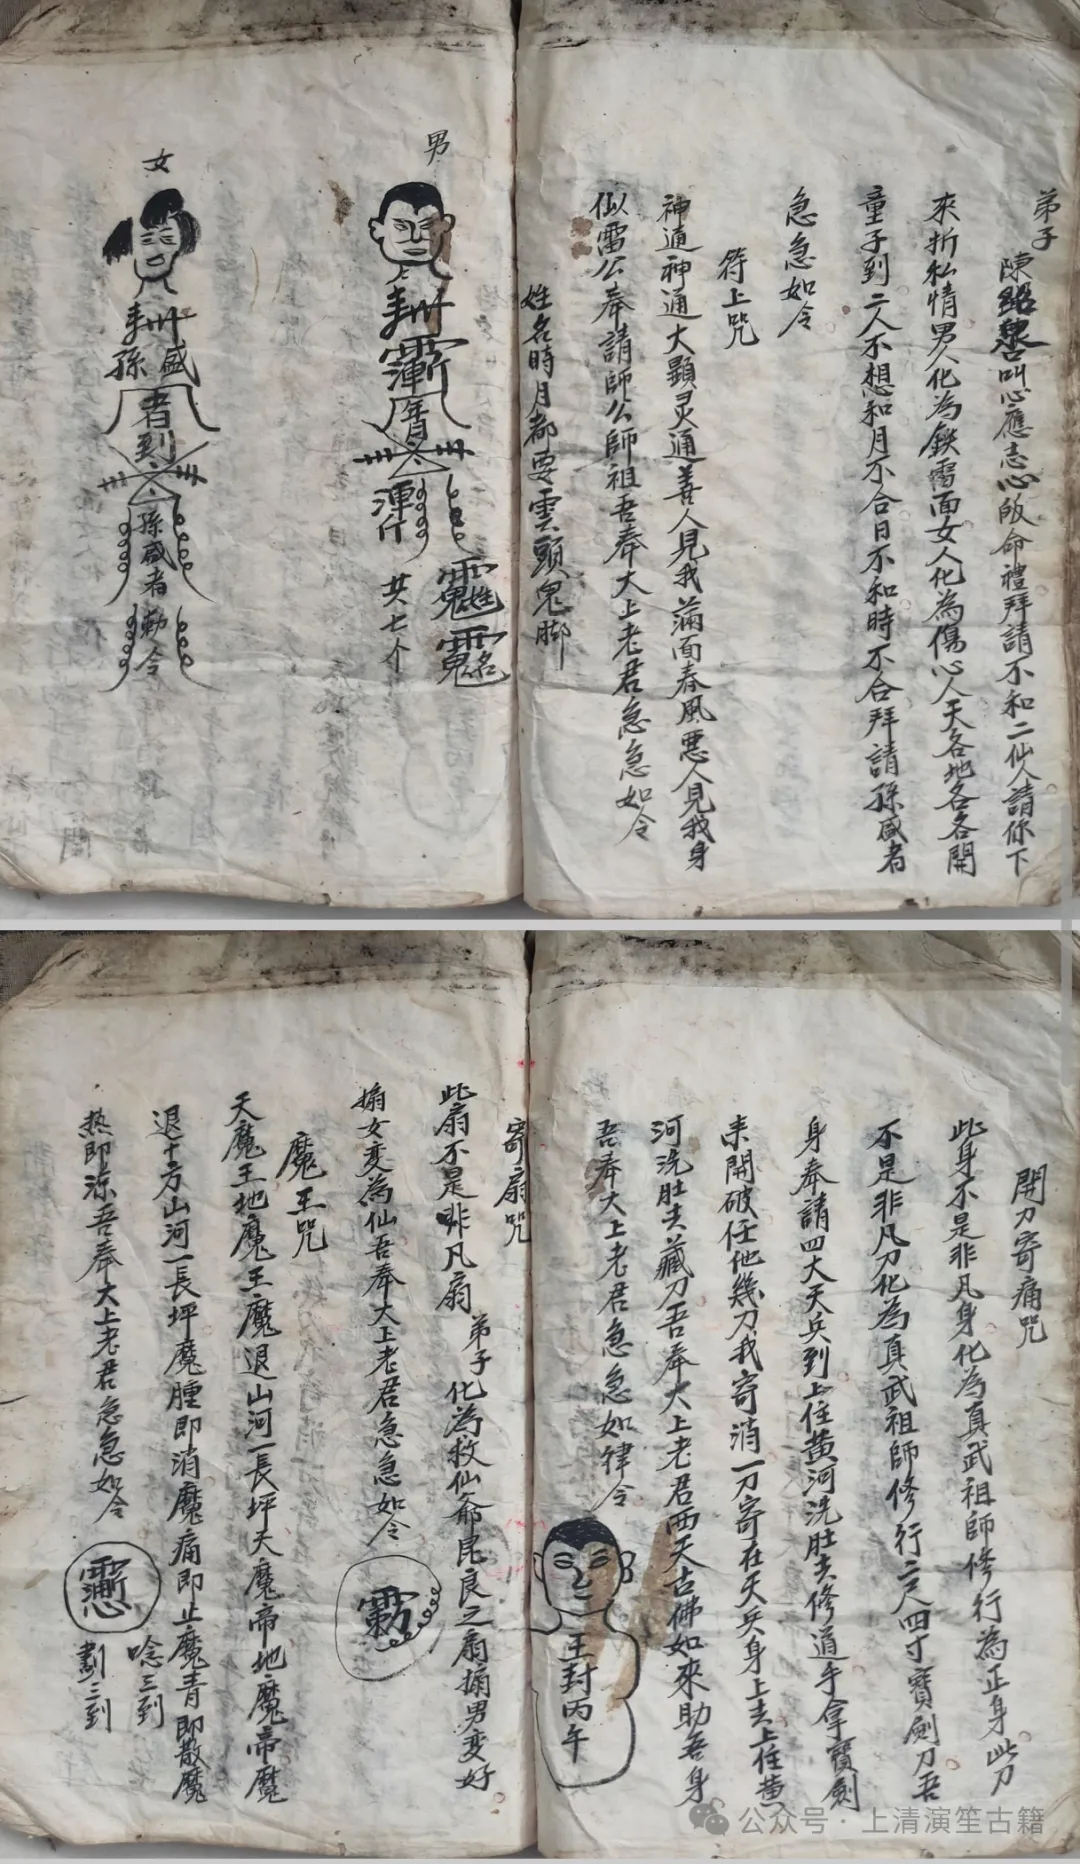 弟子
陳 叫心應志心皈命禮拜請不和二仙人請你下
來折私情男人化為鉄雷面女人化為傷心人天各地各各開
童子到二人不想和月不合日不和時不合拜請孫咸者
急急如令
符上咒
神通神通大顯灵通善人見我滿面春風悪人見我身
似雷公奉請師公師祖吾奉大上老君急急如令
姓名時月都要雲頭鬼脚
男
共七个
女
孫盛
者到
孫咸者勅令
開刀寄痛咒
此身不是非凡身化為真武祖師修行為正身此刀
不是非凡刀化為真武祖師修行二尺四寸寶劍刀吾
身奉請四大天兵到上住黄河洗肚去修道手拿寶劍
来開破任他幾刀我寄消一刀寄在天兵身上去上住黄
河洗肚去藏刀吾奉大上老君西天古佛如來助吾身
吾奉大上老君急急如律令
王封丙午
寄扇咒
此扇不是非凡扇弟子化為救仙爺昆良之扇搧男变好
搧女变為仙吾奉大上老君急急如令
魔王咒
天魔王地魔王魔退山河一長坪天魔帝地魔帝魔
退十方山河一長坪魔腫即消魔痛即止魔青即散魔
热即凉吾奉大上老君急急如令
唸三到
劃三到
公众号·上清演笙古籍